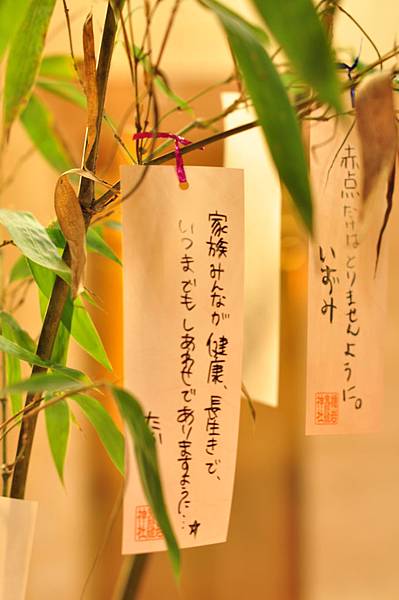 家族みんなが健康、長生きで、
いつまでもしあわせでありますように…☆
赤点だけはとりませんように。
いずみ
神社